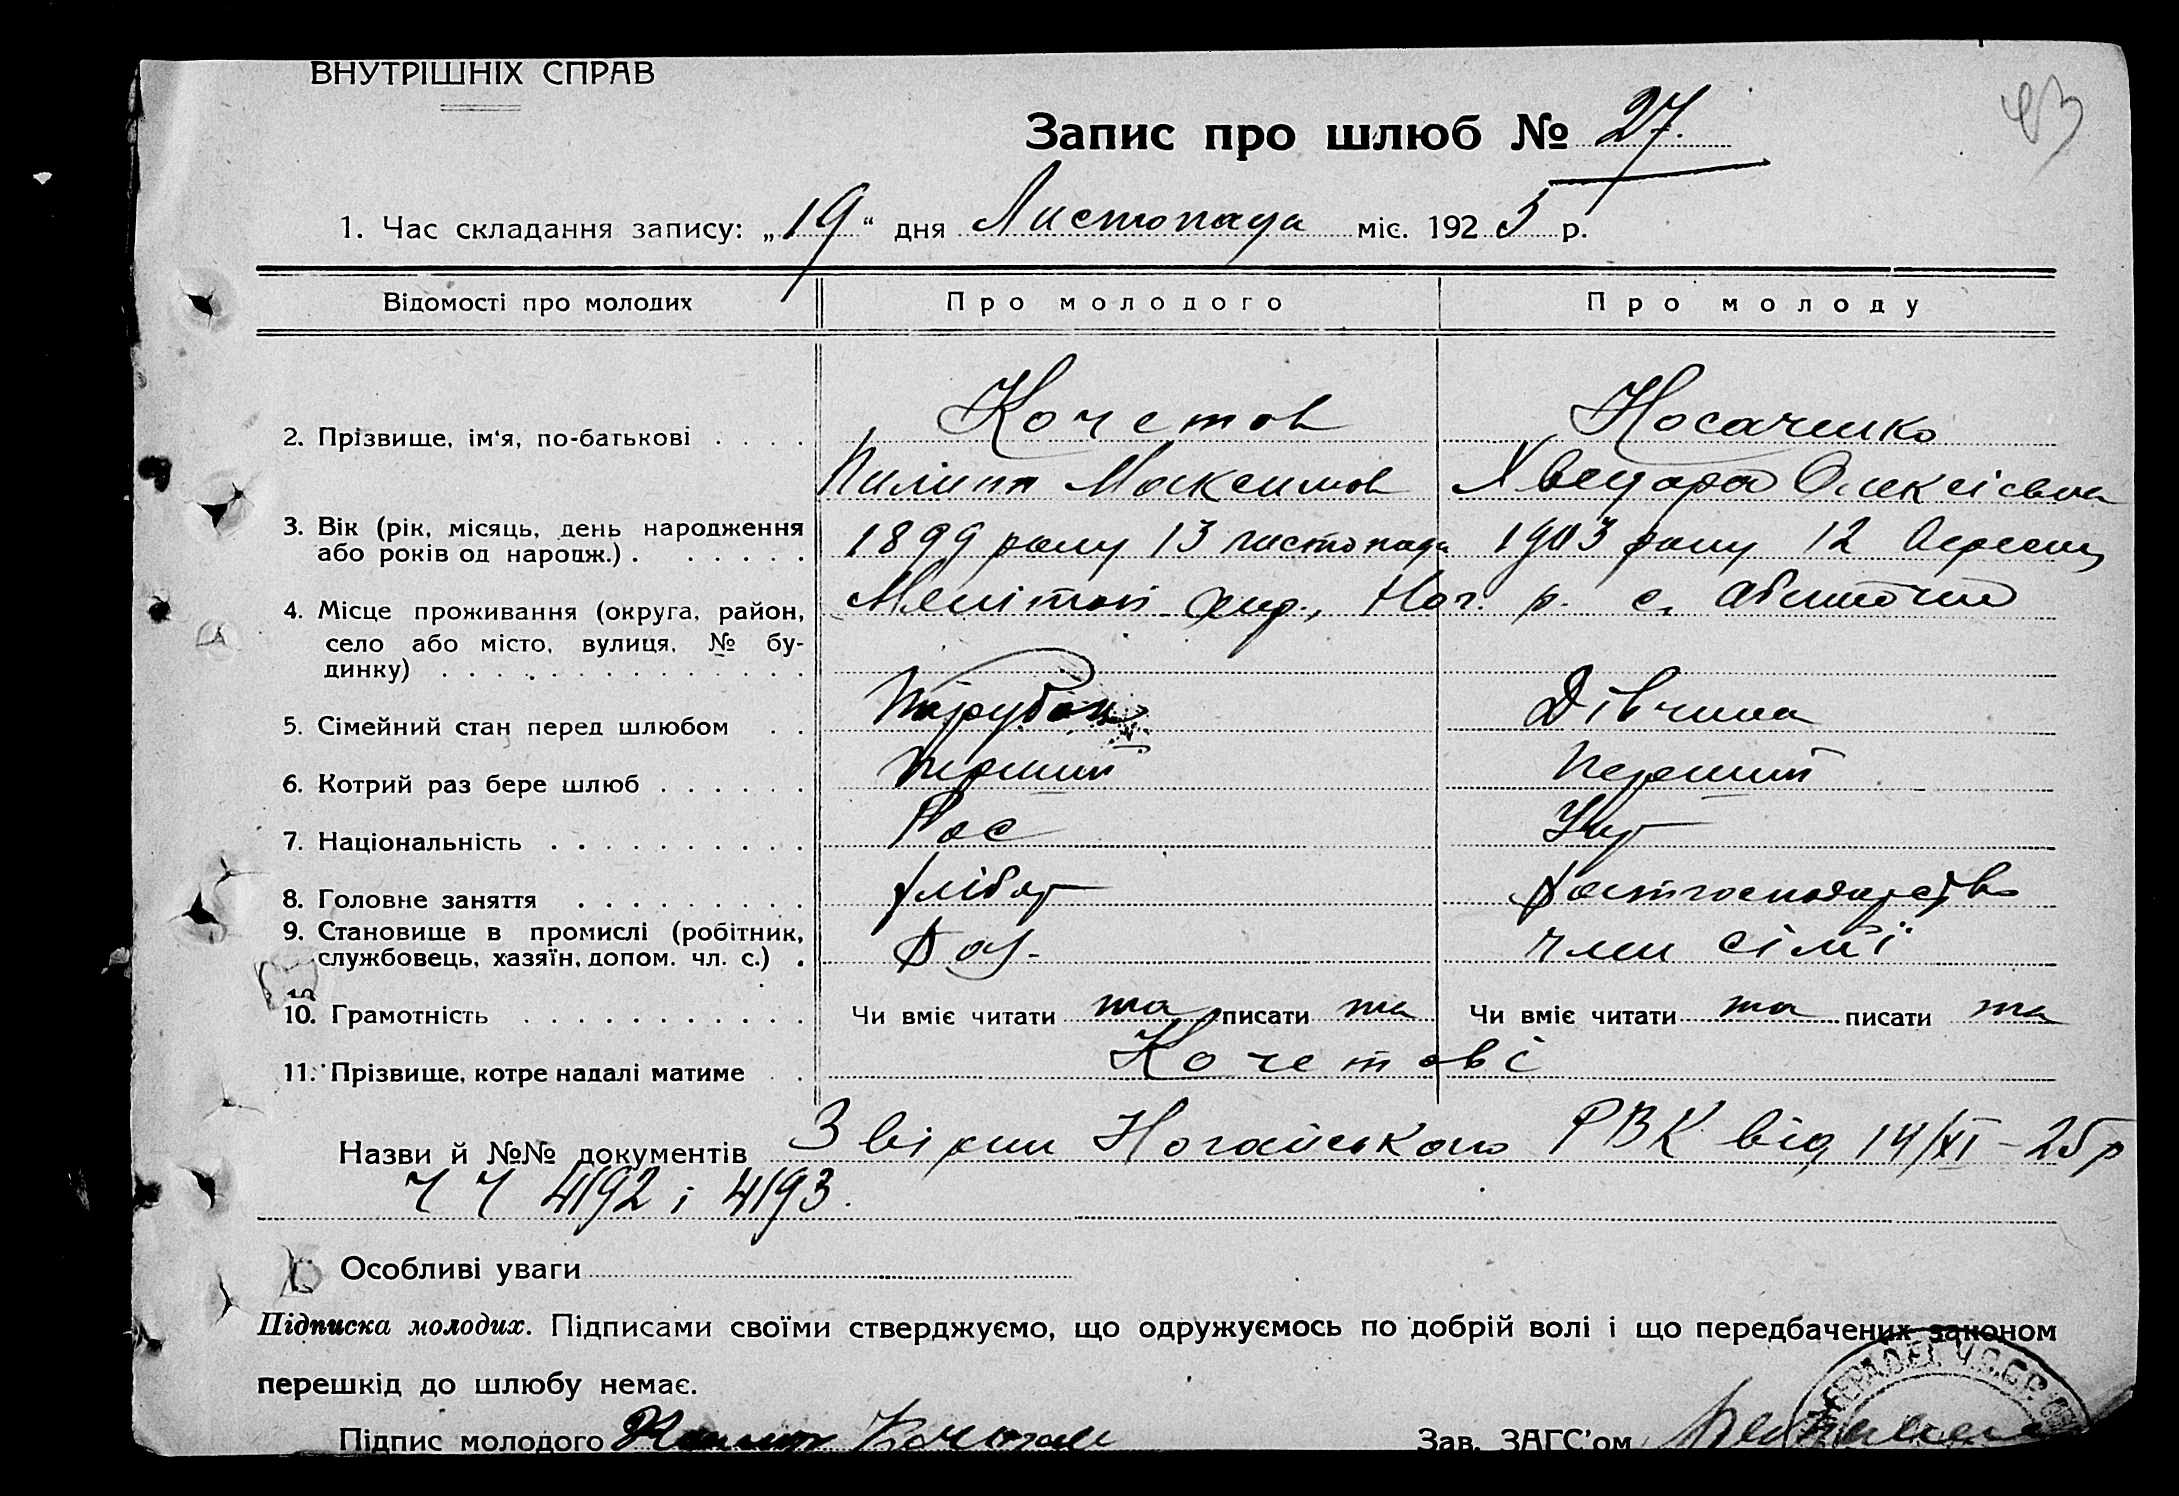 ВНУТРІШНІХ СПРАВ
43
Запис про шлюб № 27.
1. Час складання запису: „19“ дня Листопада міс. 1925 р.
Відомості про молодих Про молодого Про молоду
2. Прізвище, ім'я, по-батькові . . . . Кочетов Носаченко
Пилипп Максимов Хведора Олексієвна
3. Вік (рік, місяць, день народження
або років од народж.) . . . . . . 1899 року 13 листопада 1903 року 12 Вересня
4. Місце проживання (округа, район, Меліт. Окр., Ног. р. с.
село або місто, вулиця, № бу-
динку) . . . . . . . . . . . . . .
5. Сімейний стан перед шлюбом . . Парубок Дівчина
6. Котрий раз бере шлюб . . . . . . Перший Перший
7. Національність . . . . . . . . . . Рос Укр
8. Головне заняття . . . . . . . . . хлібор
9. Становище в промислі (робітник,
службовець, хазяїн, допом. чл. с.) . член сім'ї
10. Грамотність . . . . . . . . . . . Чи вміє читати та писати та Чи вміє читати та писати та
11. Прізвище, котре надалі матиме . . Кочетові
Назви й №№ документів Звірки Ногайського РВК від 14/XI-25 р
ч ч 4192 і 4193.
Особливі уваги
Підписка молодих. Підписами своїми стверджуємо, що одружуємось по добрій волі і що передбачених законом
перешкід до шлюбу немає.
Підпис молодого Кочетов Зав. ЗАГС'ом